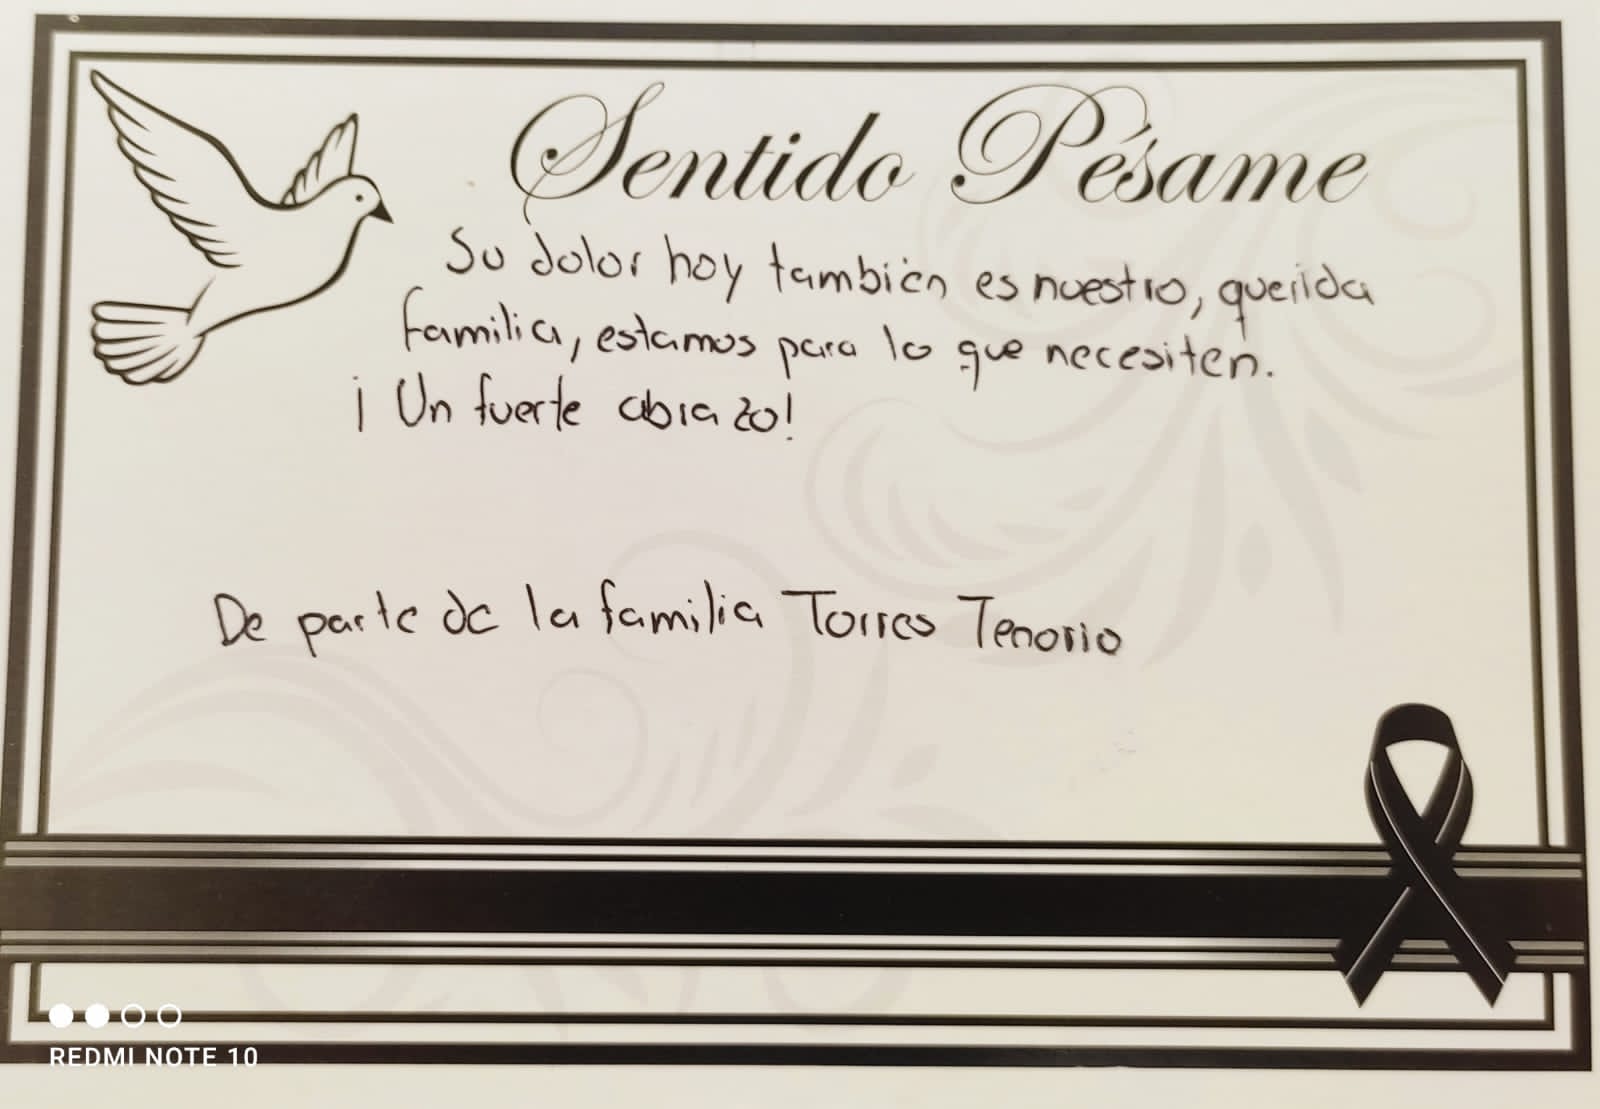 Sentido Pésame
Su dolor hoy también es nuestro, querida
familia, estamos para lo que necesiten.
¡Un fuerte abrazo!
De parte de la familia Torres Tenorio
REDMI NOTE 10